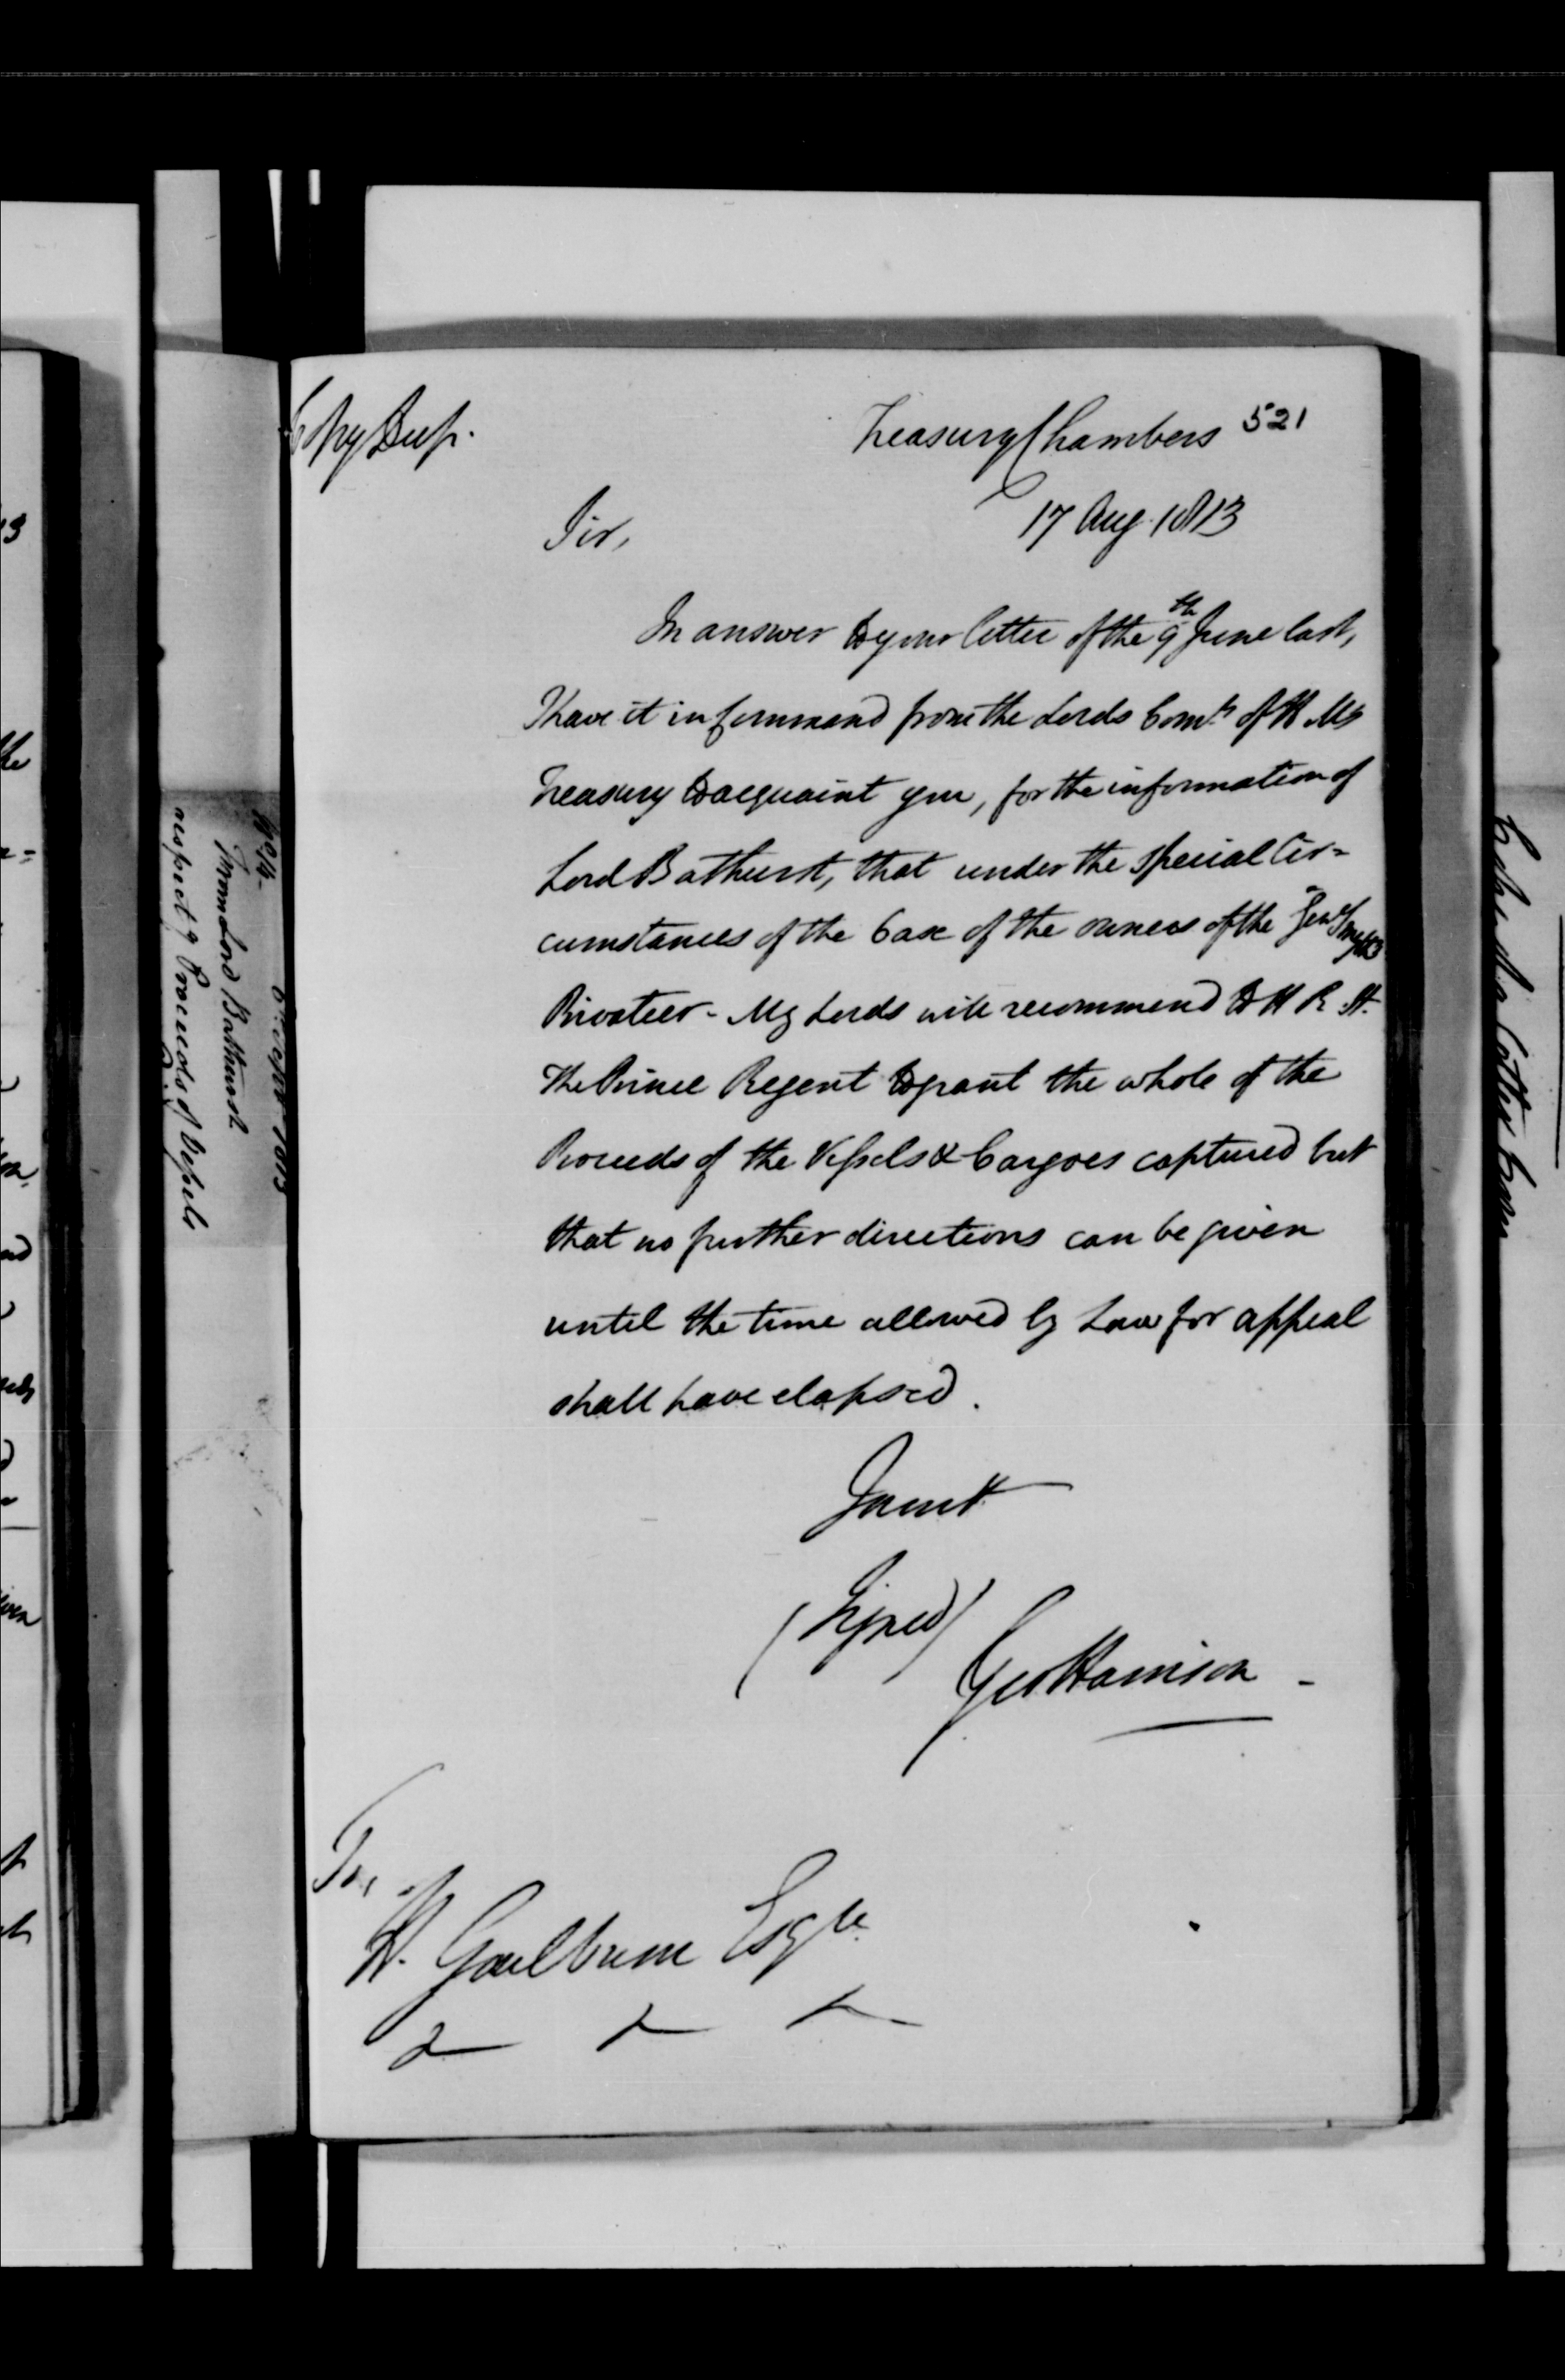 Copy Dup.
Treasury Chambers 521
17 Aug 1813
Sir,
In answer to your letter of the 9th June last,
I have it in Command from the Lords Comrs of H Ms
Treasury to acquaint you, for the information of
Lord Bathurst, that under the special Cir=
cumstances of the Case of the owners of the Genl Smyth
Privateer - My Lords will recommend to H R H.
The Prince Regent to grant the whole of the
Proceeds of the Vessels & Cargoes captured but
that no further directions can be given
until the time allowed by Law for appeal
shall have elapsed.
I am &
(Signed)
Geo Harrison -
To,
H. Goulburn Esqre
Copy
From Lord Bathurst
respectg Proceeds of Vessels